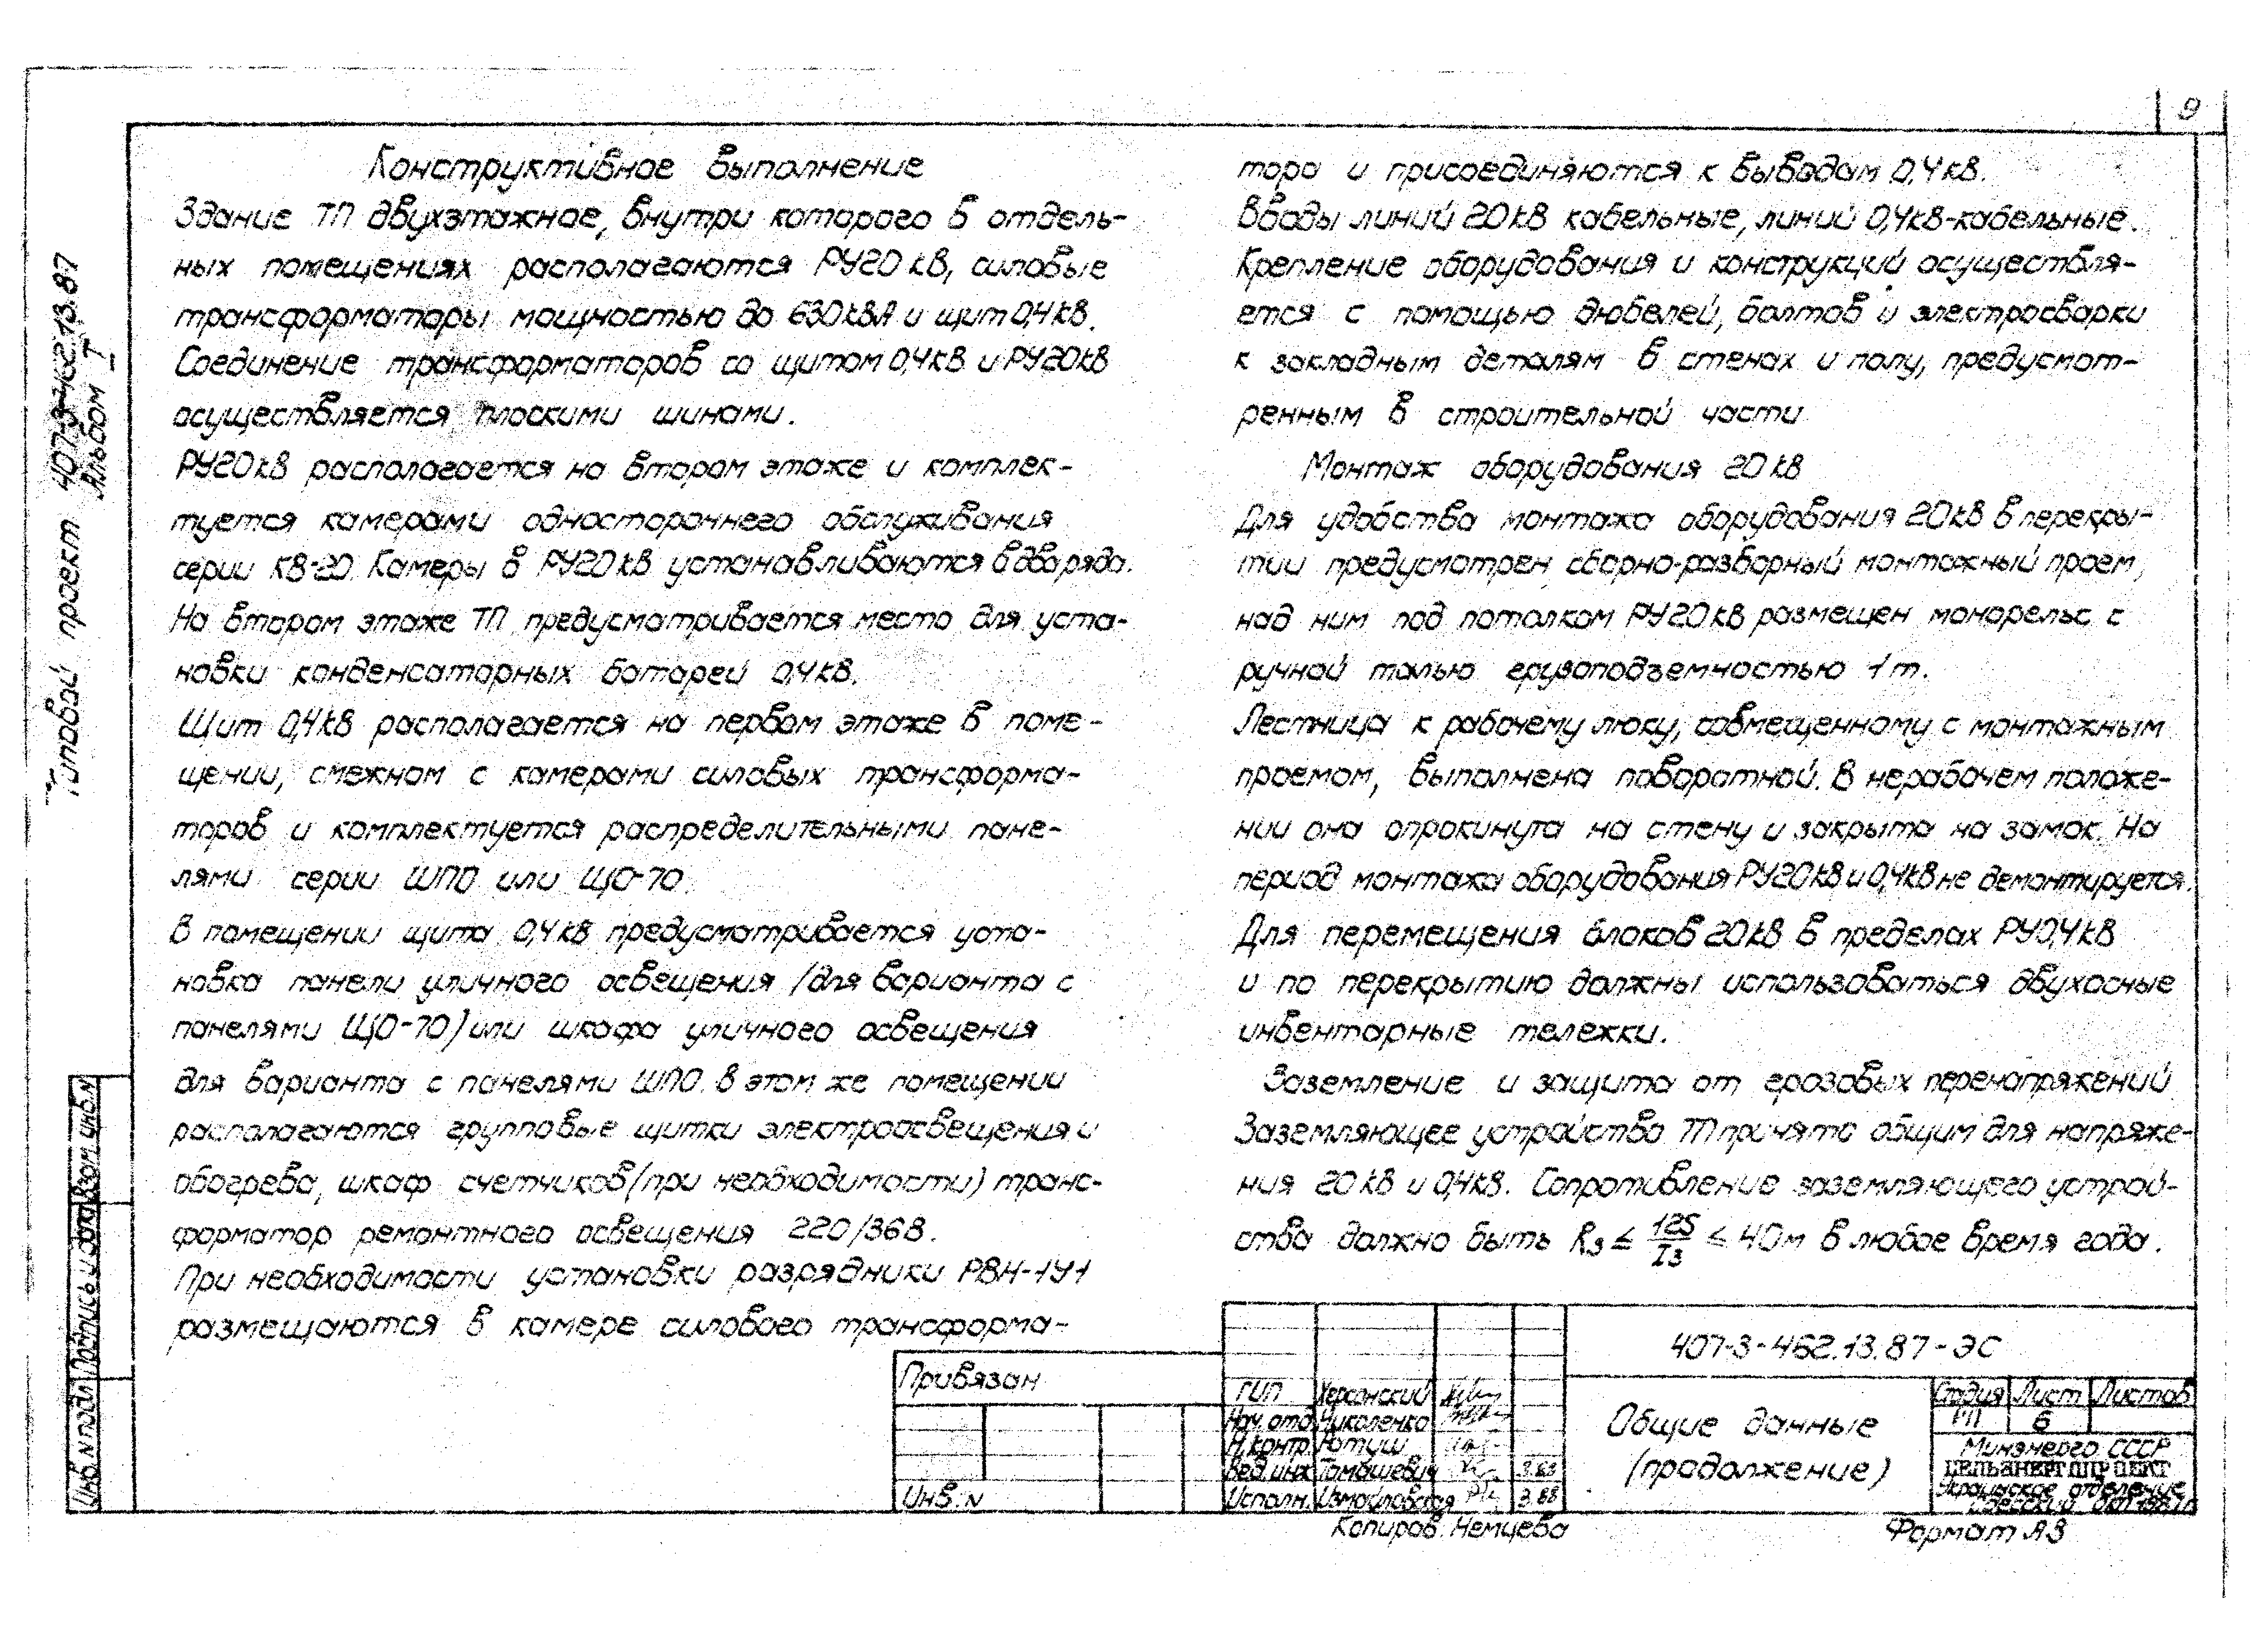 9
Типовой проект 407-3-462.13.87
Альбом I
Конструктивное выполнение
Здание ТП двухэтажное, внутри которого в отдель-
ных помещениях располагаются РУ20кВ, силовые
трансформаторы мощностью до 630кВА и щит 0,4кВ.
Соединение трансформаторов со щитом 0,4кВ и РУ20кВ
осуществляется плоскими шинами.
РУ20кВ располагается на втором этаже и комплек-
туется камерами одностороннего обслуживания
серии КВ-20. Камеры в РУ20кВ устанавливаются в два ряда.
На втором этаже ТП предусматривается место для уста-
новки конденсаторных батарей 0,4кВ.
Щит 0,4кВ располагается на первом этаже в поме-
щении, смежном с камерами силовых трансформа-
торов и комплектуется распределительными пане-
лями серии ШПО или ЩО-70.
В помещении щита 0,4кВ предусматривается уста-
новка панели уличного освещения /для варианта с
панелями ЩО-70) или шкафа уличного освещения
для варианта с панелями ШПО. В этом же помещении
располагаются групповые щитки электроосвещения и
обогрева, шкаф счетчиков (при необходимости) транс-
форматор ремонтного освещения 220/36В.
При необходимости установки разрядники РВН-1У1
размещаются в камере силового трансформа-
тора и присоединяются к выводам 0,4кВ.
Вводы линий 20кВ кабельные, линий 0,4кВ-кабельные.
Крепление оборудования и конструкций осуществля-
ется с помощью дюбелей, болтов и электросварки
к закладным деталям в стенах и полу, предусмот-
ренным в строительной части
Монтаж оборудования 20кВ
Для удобства монтажа оборудования 20кВ в перекры-
тии предусмотрен сборно-разборный монтажный проем,
над ним под потолком РУ20кВ размещен монорельс с
ручной талью грузоподъемностью 1т.
Лестница к рабочему люку, совмещенному с монтажным
проемом, выполнена поворотной. В нерабочем положе-
нии она опрокинута на стену и закрыта на замок. На
период монтажа оборудования РУ20кВ и 0,4кВ не демонтируется.
Для перемещения блоков 20кВ в пределах РУ0,4кВ
и по перекрытию должны использоваться двухосные
инвентарные тележки.
Заземление и защита от грозовых перенапряжений
Заземляющее устройство ТП принято общим для напряже-
ния 20кВ и 0,4кВ. Сопротивление заземляющего устрой-
ства должно быть Rз ≤ 125/Iз ≤ 4Ом в любое время года.
Взам. инв.N
Подпись и дата
Инв. N подл
Привязан
Инв. N
407-3-462.13.87-ЭС
ГИП Херсонский
Нач. отд. Николенко
Н.контр. Ратуш
Вед. инж Томашевич 3.88
Исполн. Измайловская 3.88
Общие данные
(продолжение)
Стадия Лист Листов
РП 6
Минэнерго СССР
СЕЛЬЭНЕРГОПРОЕКТ
Украинское отделение
Копиров. Немцева
Формат А3